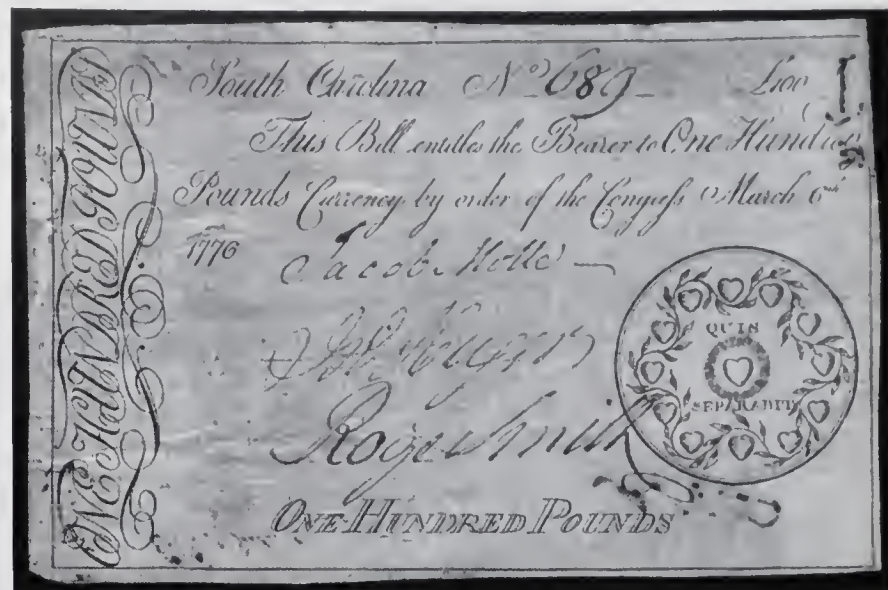 ONE HUNDRED POUNDS
South Carolina No. 689 £100
This Bill entitles the Bearer to One Hundred
Pounds Currency by order of the Congress March 6th
1776
Jacob Motte
Roger Smith
QUIS
SEPARABIT
ONE HUNDRED POUNDS